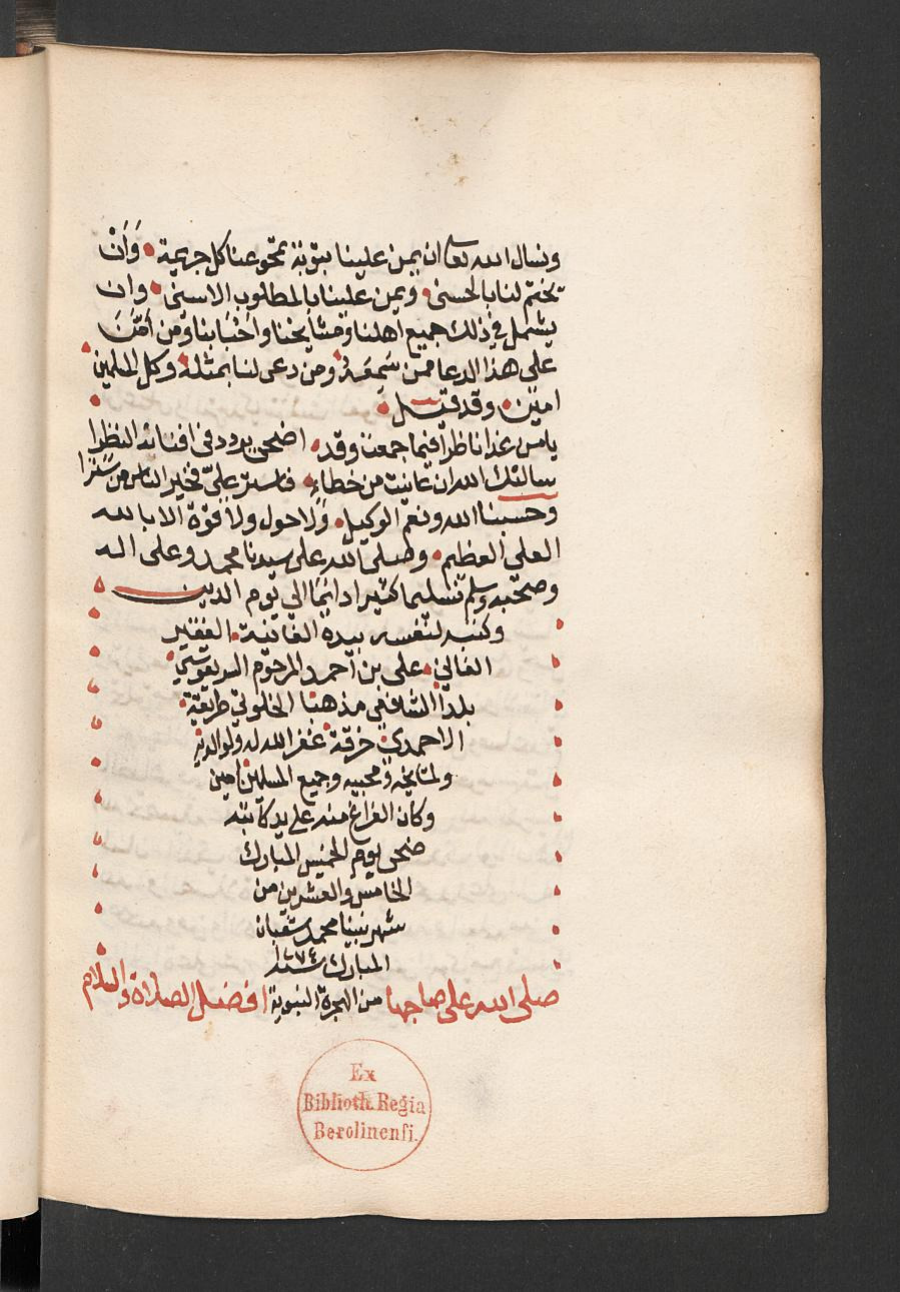 ونسال الله تعا ان يمن علينا بتوبة تمحو عنا كل جريمة وَاَنْ
يختم لنا بالحسنى ويمن علينا بالمطلوب الاسنى وان
يشمل في ذلك جميع اهلنا ومشايخنا واحبابنا ومن اَمَّنَ
على هذا الدعا ممن سمعه ومن دعى لنا بمثله وكل المسلمين
امين وقد قيل
يا من غدا ناظرا فيما جمعت وقد اضحى يردد فى افنائه النظرا
سالتك الله ان عاينت من خطاء فاستر علىّ فخير الناس من سترا
وحسبنا الله ونعم الوكيل ولا حول ولا قوة الا بالله
العلى العظيم وصلى الله على سيدنا محمد وعلى اله
وصحبه وسلم تسليما كثيرا دائما الى يوم الدين
وكتبه لنفسه بيده الفانية الفقير
الفانى على بن احمد المرحوم
بلدا الشافعى مذهبا الخلوتى طريقة
الاحمدى خرقة غفر الله له ولوالديه
ولمشايخه ومحبيه وجميع المسلمين امين
وكان الفراغ منه على يد كاتبه
ضحى يوم الخميس المبارك
الخامس والعشرين من
شهر نبينا محمد شعبان
المبارك سنة
من الهجرة النبوية على صاحبها افضل الصلاة والسلام صلى الله
Ex
Biblioth. Regia
Berolinensi.